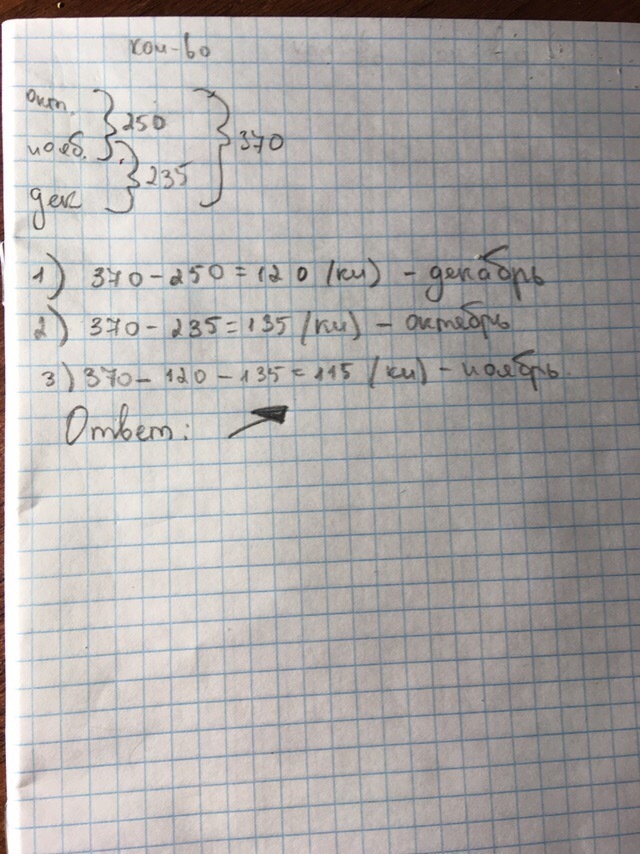 кол-во
окт. } 250 } 370
нояб.
} 235
дек
1) 370 - 250 = 120 (кн) - декабрь
2) 370 - 235 = 135 (кн) - октябрь
3) 370 - 120 - 135 = 115 (кн) - ноябрь.
Ответ: